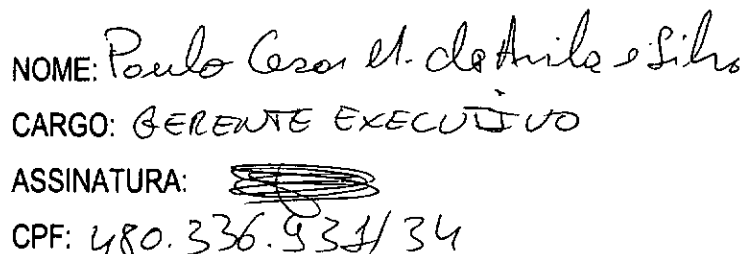 NOME: Paulo Cesar M. de Avila e Silva
CARGO: GERENTE EXECUTIVO
ASSINATURA:
CPF: 480.336.931/34